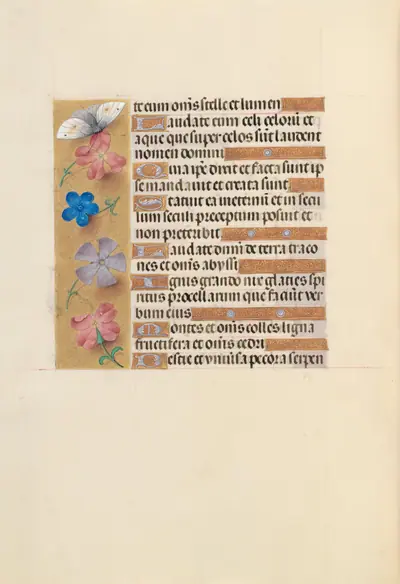 te eum om̄s stelle et lumen
Laudate eum celi celorū et
aque que super celos sūt laudent
nomen domini
Quia ip̄e dixit et facta sunt ip
se mandauit et creata sunt
Statuit ea in eternū et in secu
lum seculi preceptum posuit et
non preteribit
Laudate dn̄m de terra draco
nes et om̄s abyssi
Ignis grando nix glacies spi
ritus procellarum que faciūt ver
bum eius
Montes et om̄s colles ligna
fructifera et om̄s cedri
Bestie et vniuersa pecora serpen